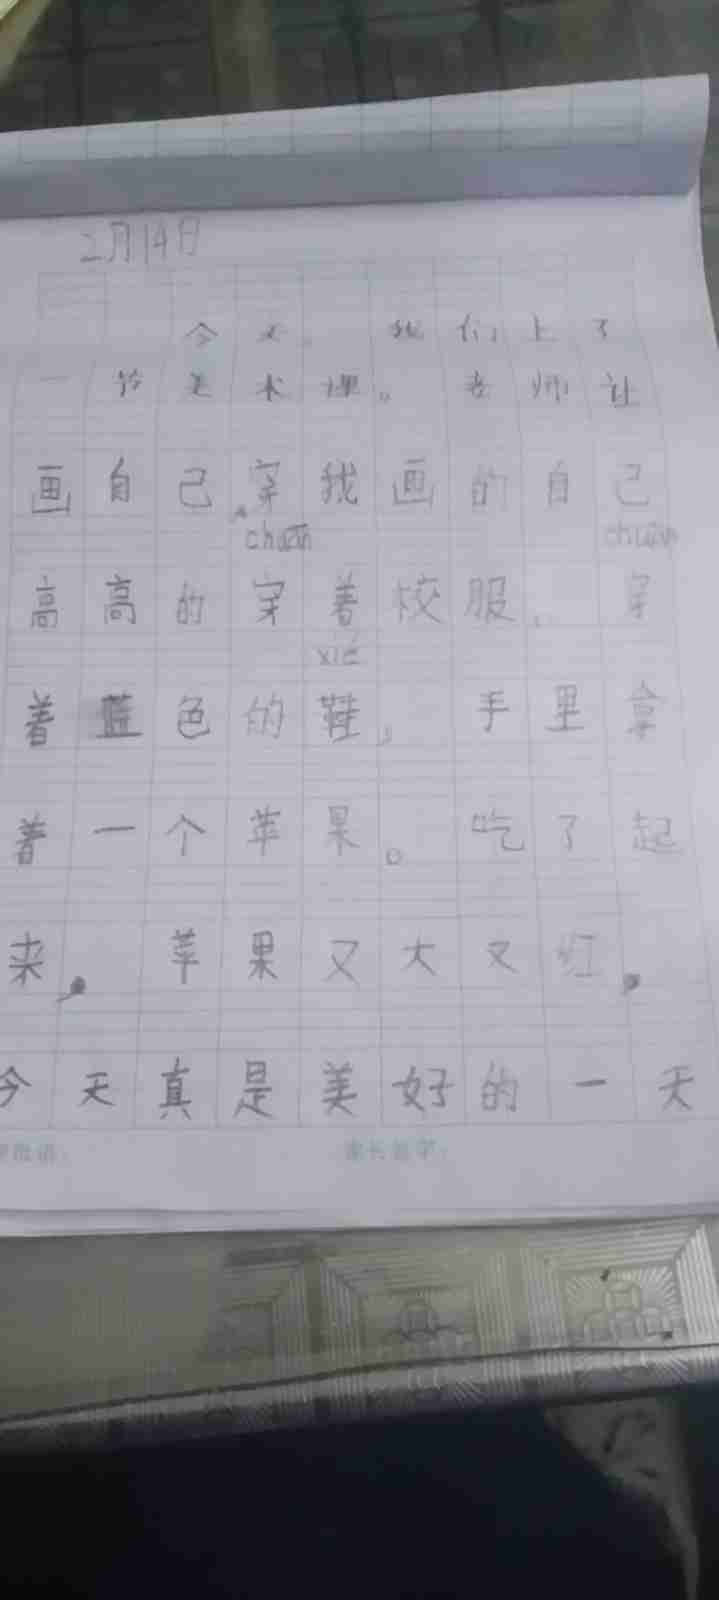 2月14日
今天。我们上了
一节美术课。老师让
画自己。穿我画的自己
chuān chuān
高高的穿着校服，穿
xié
着蓝色的鞋，手里拿
着一个苹果。吃了起
来。苹果又大又红。
今天真是美好的一天
家长签字：